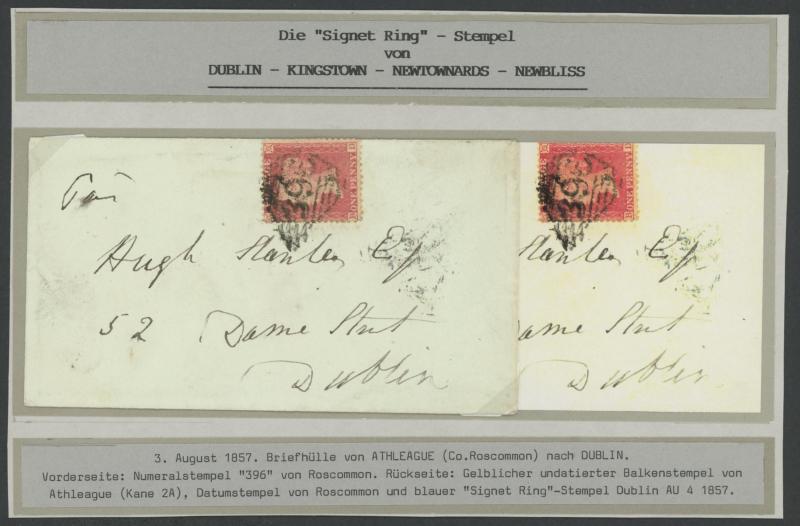 Die "Signet Ring" - Stempel
von
DUBLIN - KINGSTOWN - NEWTOWNARDS - NEWBLISS
396
ONE PENNY
Hugh Stanley Esq
52 Dame Street
Dublin
396
ONE PENNY
Stanley Esq
Dame Street
Dublin
3. August 1857. Briefhülle von ATHLEAGUE (Co.Roscommon) nach DUBLIN.
Vorderseite: Numeralstempel "396" von Roscommon. Rückseite: Gelblicher undatierter Balkenstempel von
Athleague (Kane 2A), Datumstempel von Roscommon und blauer "Signet Ring"-Stempel Dublin AU 4 1857.